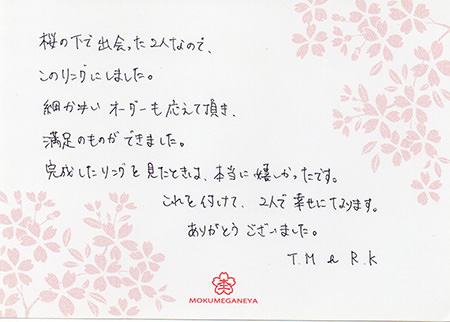 桜の下で出会った2人なので、
このリングにしました。
細かいオーダーも応えて頂き、
満足のものができました。
完成したリングを見たときは、本当に嬉しかったです。
これを付けて、2人で幸せになります。
ありがとうございました。
T.M & R.K
MOKUMEGANEYA